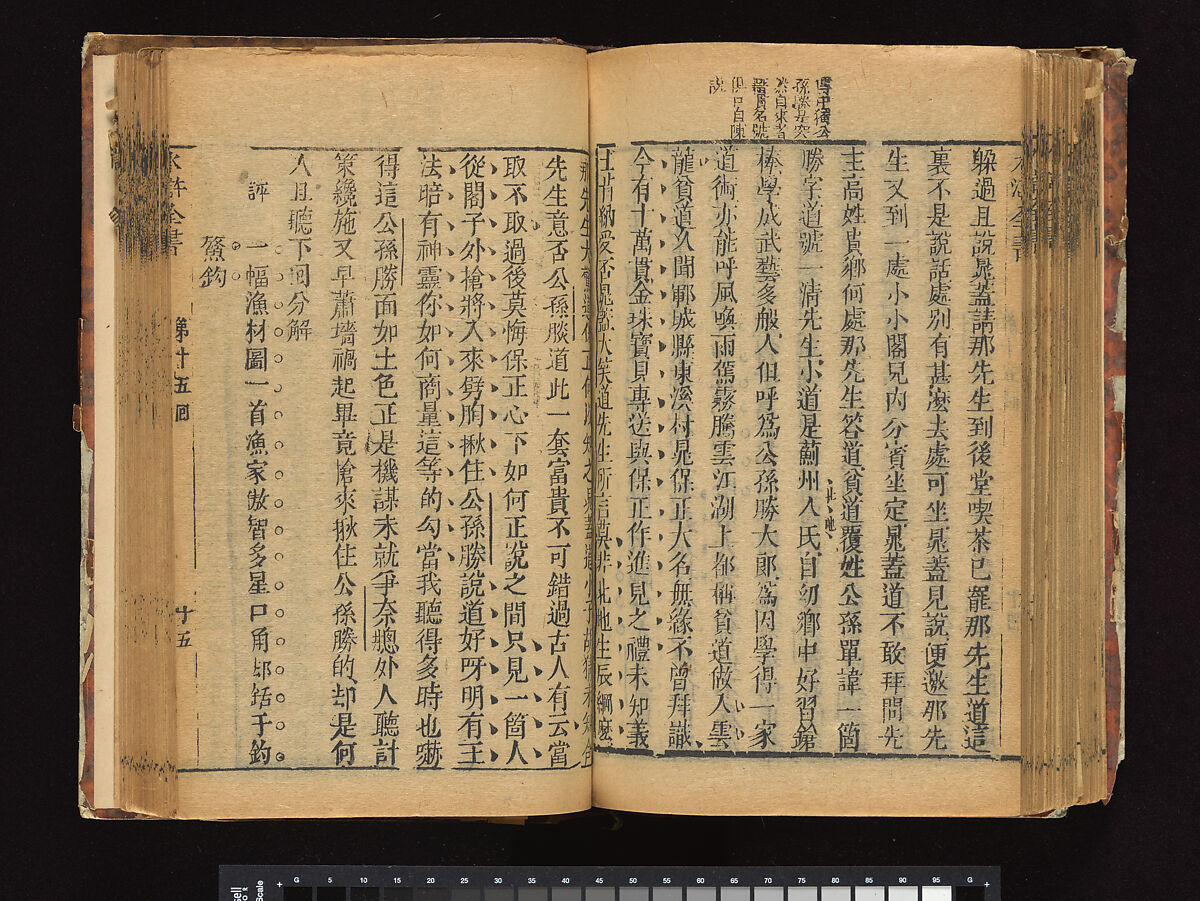 躲過且說晁蓋請那先生到後堂喫茶已罷那先生道這
裏不是說話處別有甚麼去處可坐晁蓋見說便邀那先
生又到一處小小閣兒內分賓坐定晁蓋道不敢拜問先
生高姓貴鄉何處那先生答道貧道覆姓公孫單諱一箇
勝字道號一清先生小道是薊州人氏自幼鄉中好習鎗
棒學成武藝多般人但呼為公孫勝大郎為因學得一家
道術亦能呼風喚雨駕霧騰雲江湖上都稱貧道做入雲
龍貧道久聞鄆城縣東溪村晁保正大名無緣不曾拜識
今有十萬貫金珠寶貝專送與保正作進見之禮未知義
士肯納受否晁蓋大笑道先生所言莫非北地生辰綱麼
那先生大驚道保正何以知之晁蓋道小子胡猜未知合
先生意否公孫勝道此一套富貴不可錯過古人有云當
取不取過後莫悔保正心下如何正說之間只見一箇人
從閣子外搶將入來劈胸揪住公孫勝說道好呀明有王
法暗有神靈你如何商量這等的勾當我聽得多時也嚇
得這公孫勝面如土色正是機謀未就爭奈牕外人聽計
策纔施又早蕭墻禍起畢竟搶來揪住公孫勝的却是何
人且聽下回分解
評 一幅漁村圖一首漁家傲智多星口角却銛于鈎
鰲鈎
水滸全書 第十五囘 十五